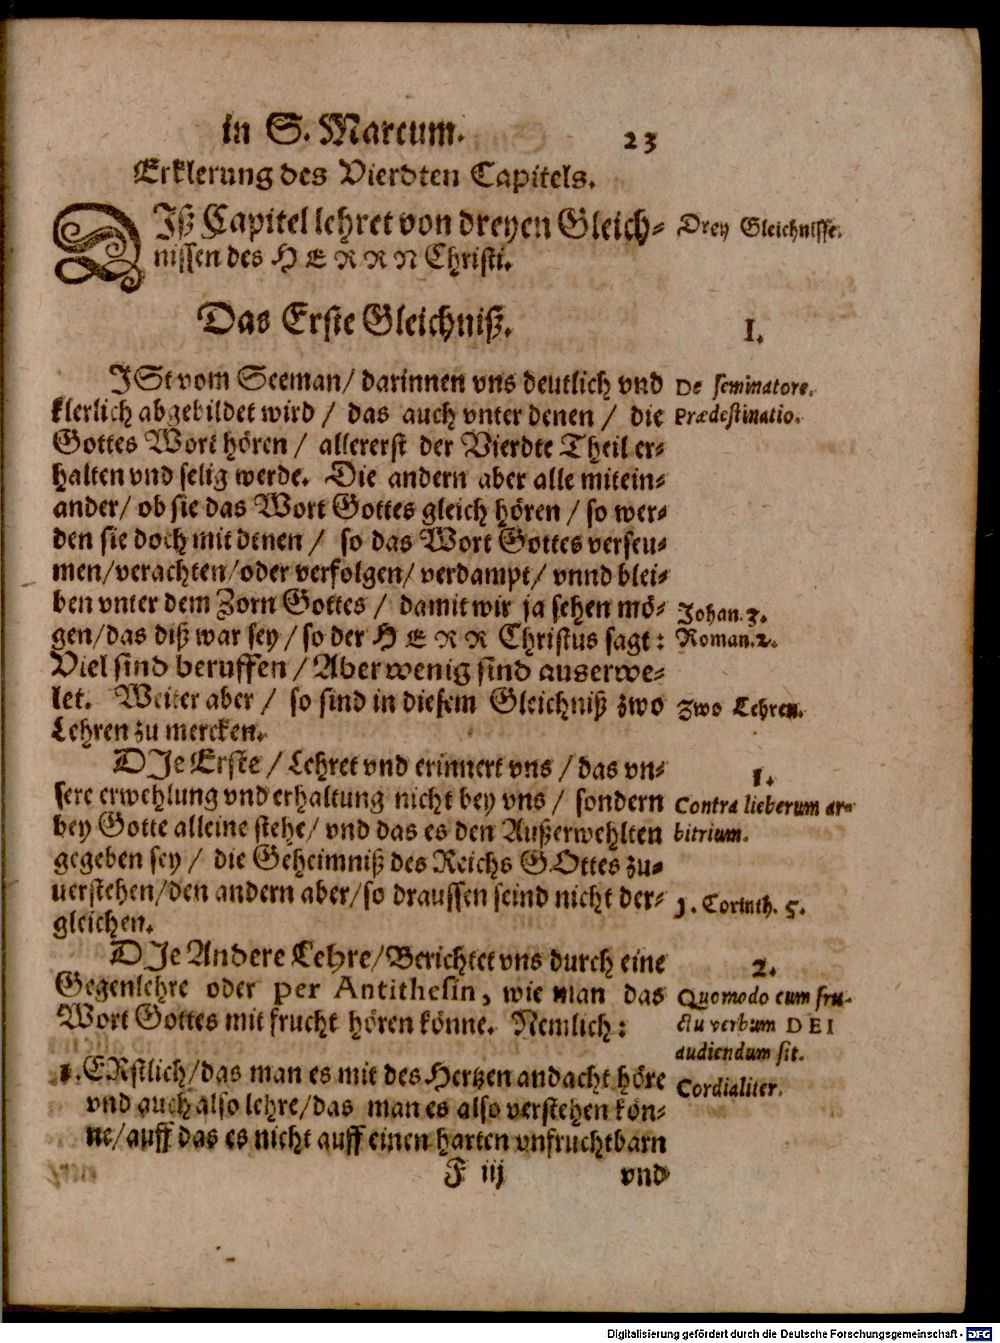 in S. Marcum. 23
Erklerung des Vierdten Capitels.
DIß Capitel lehret von dreyen Gleich⸗
nissen des HERRN Christi.
Drey Gleichnisse.
Das Erste Gleichniß.
I.
JSt vom Seeman / darinnen vns deutlich vnd
klerlich abgebildet wird / das auch vnter denen / die
Gottes Wort hören / allererst der Vierdte Theil er⸗
halten vnd selig werde. Die andern aber alle mitein⸗
ander / ob sie das Wort Gottes gleich hören / so wer⸗
den sie doch mit denen / so das Wort Gottes verseu⸗
men / verachten / oder verfolgen / verdampt / vnnd blei⸗
ben vnter dem Zorn Gottes / damit wir ja sehen mö⸗
gen / das diß war sey / so der HERR Christus sagt:
Viel sind beruffen / Aber wenig sind auserwe⸗
let. Weiter aber / so sind in diesem Gleichniß zwo
Lehren zu mercken.
De seminatore.
Prædestinatio.
Johan. 3.
Roman. 2.
Zwo Lehren.
DJe Erste / Lehret vnd erinnert vns / das vn⸗
sere erwehlung vnd erhaltung nicht bey vns / sondern
bey Gotte alleine stehe / vnd das es den Außerwehlten
gegeben sey / die Geheimniß des Reichs GOttes zu⸗
uerstehen / den andern aber / so draussen seind nicht der⸗
gleichen.
1.
Contra lieberum ar⸗
bitrium.
1. Corinth. 5.
DJe Andere Lehre / Berichtet vns durch eine
Gegenlehre oder per Antithesin, wie man das
Wort Gottes mit frucht hören könne. Nemlich:
2.
Quomodo cum fru⸗
ctu verbum DEI
audiendum sit.
1. ERstlich / das man es mit des Hertzen andacht höre
vnd auch also lehre / das man es also verstehen kön⸗
ne / auff das es nicht auff einen harten vnfruchtbarn
Cordialiter.
F iij vnd
Digitalisierung gefördert durch die Deutsche Forschungsgemeinschaft - DFG